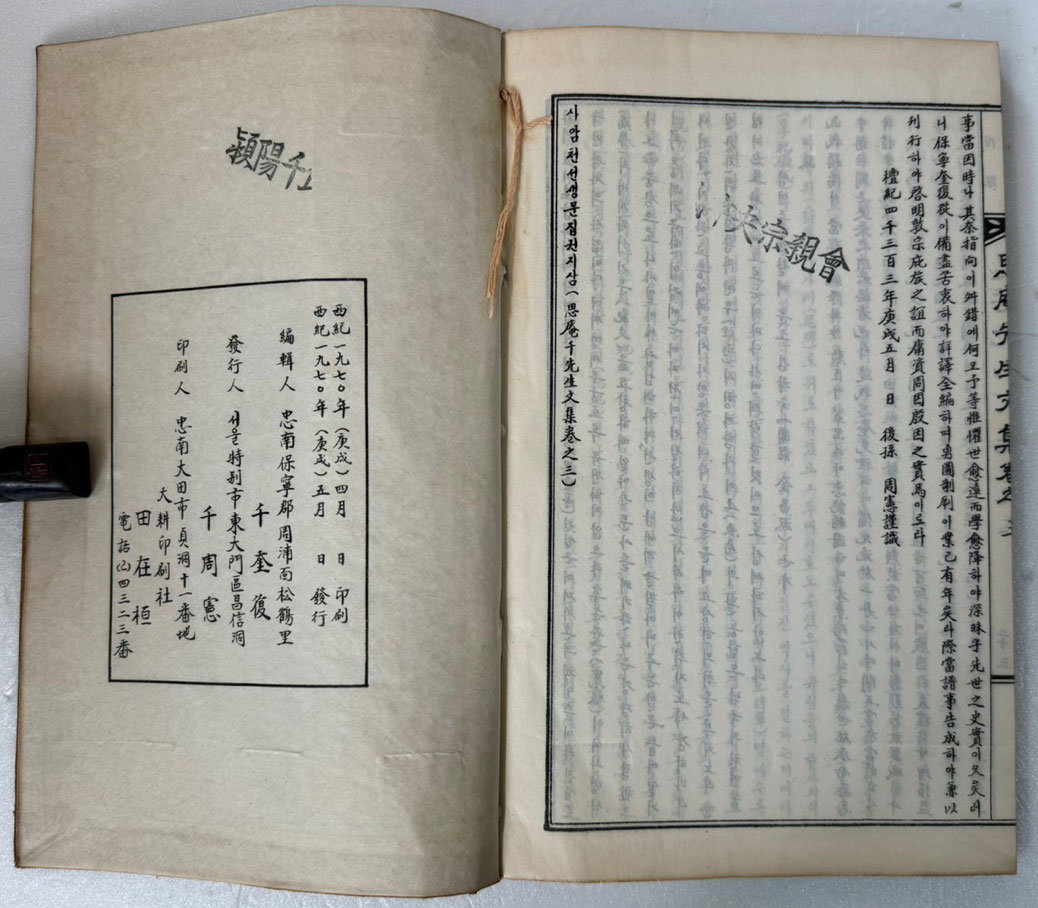 事當因時나 其奈指向이 舛錯에何오 予等惟懼世愈遠而學愈降하야 深昧乎先世之史實이 久矣러
니 保寧奎復從이 備盡苦衷하야 詳譯全編하며 另圖制刷이 業已有年矣라 際當譜事告成하야 兼以
刊行하야 啓明敦宗庇族之誼而庸資周因殷因之實焉이로라
檀紀四千三百三年庚戌五月 日 後孫 周憲謹識
사암천선생문집권지삼(思庵千先生文集卷之三)
央宗親會
潁陽千
西紀一九七○年(庚戌)四月 日 印刷
西紀一九七○年(庚戌)五月 日 發行
編輯人 忠南保寧郡周浦面松鶴里
千奎復
發行人 서울特別市東大門區昌信洞
千周憲
印刷人 忠南大田市貞洞十一番地
天耕印刷社
田在桓
電話(2)四三二三番